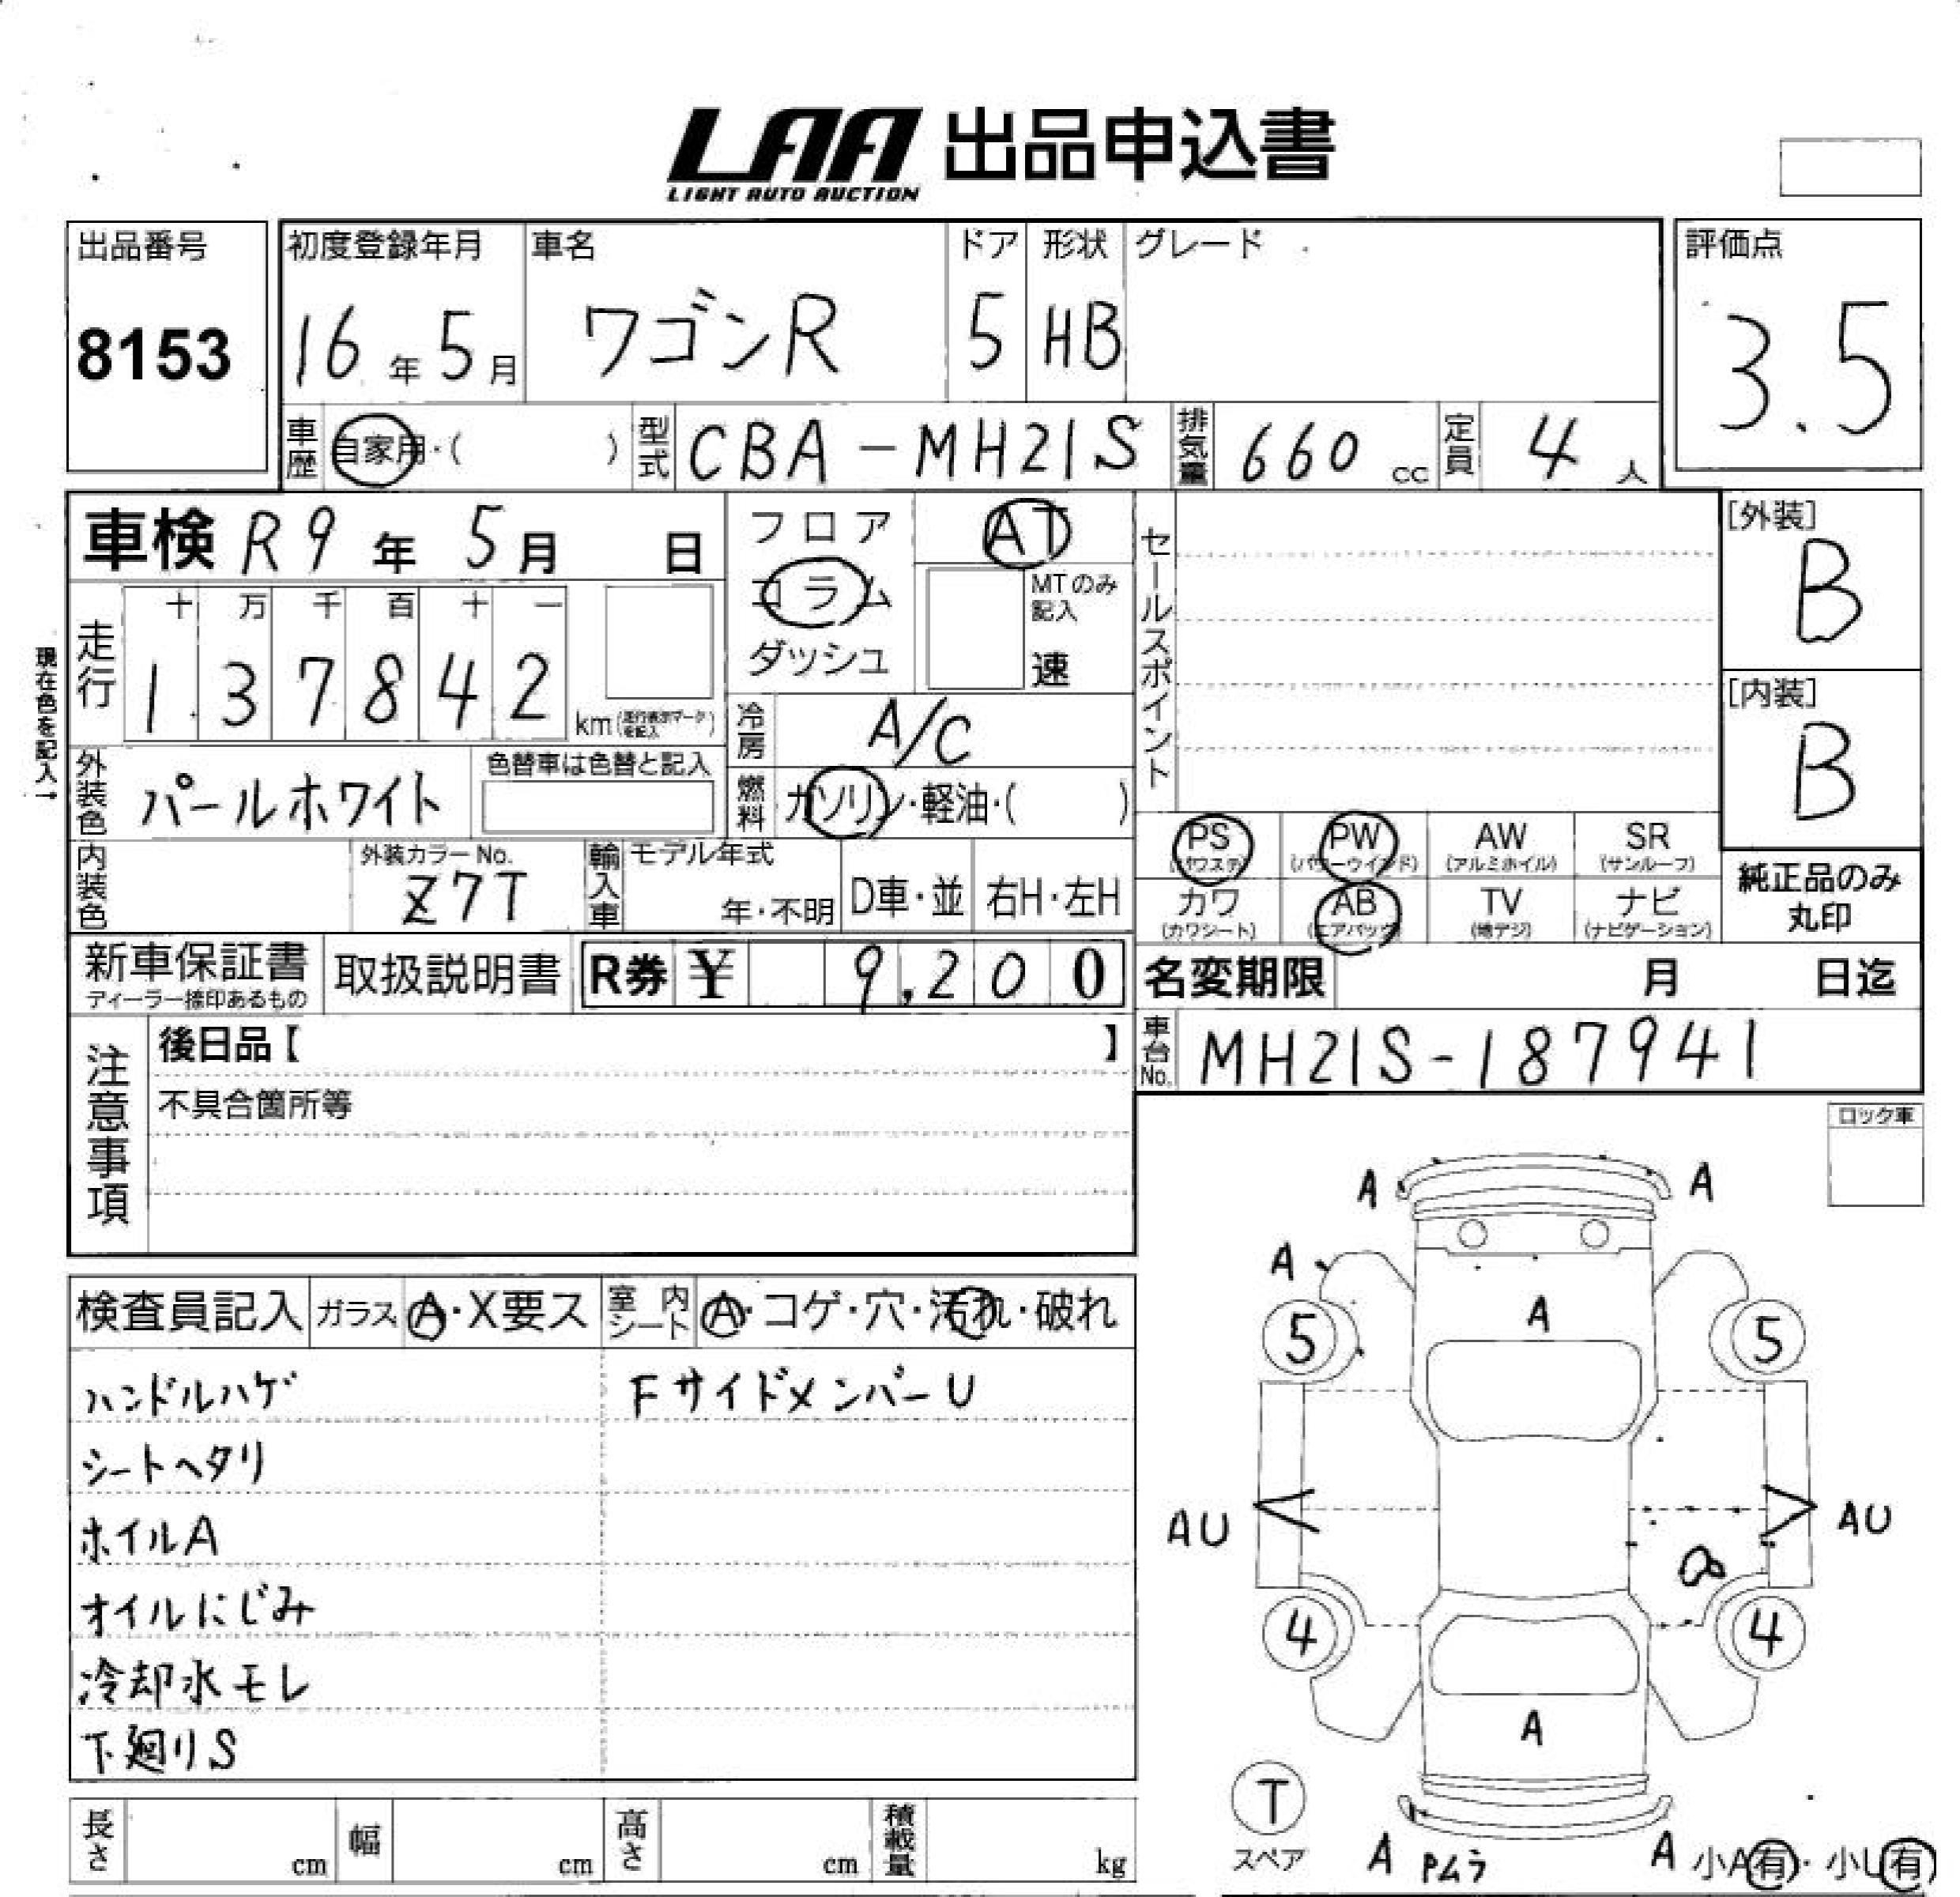 LAA 出品申込書
LIGHT AUTO AUCTION
出品番号
8153
初度登録年月
16年5月
車名
ワゴンR
ドア
5
形状
HB
グレード
評価点
3.5
車歴 自家用・( )
型式 CBA-MH21S
排気量 660 cc
定員 4人
車検 R9年 5月 日
フロア
コラム
ダッシュ
AT
MTのみ記入
速
セールスポイント
[外装]
B
[内装]
B
現在色を記入→
走行
十 万 千 百 十 一
1 3 7 8 4 2 km (走行表示マークを記入)
冷房 A/C
外装色 パールホワイト
色替車は色替と記入
燃料 ガソリン・軽油・( )
内装色
外装カラーNo.
Z7T
輸入車
モデル年式
年・不明
D車・並
右H・左H
PS (パワステ)
PW (パワーウインド)
AW (アルミホイル)
SR (サンルーフ)
カワ (カワシート)
AB (エアバック)
TV (地デジ)
ナビ (ナビゲーション)
純正品のみ
丸印
新車保証書
ディーラー捺印あるもの
取扱説明書
R券 ¥ 9,200
名変期限 月 日迄
車台No. MH21S-187941
注意事項
後日品【 】
不具合箇所等
ロック車
検査員記入 ガラス A・X要ス 室内シート A・コゲ・穴・汚れ・破れ
ハンドルハゲ
FサイドメンバーU
シートヘタリ
ホイルA
オイルにじみ
冷却水モレ
下廻りS
A
A
A
A
5
5
AU
AU
4
4
A
T
スペア
A
Pムラ
A
小A有・小U有
長さ cm
幅 cm
高さ cm
積載量 kg